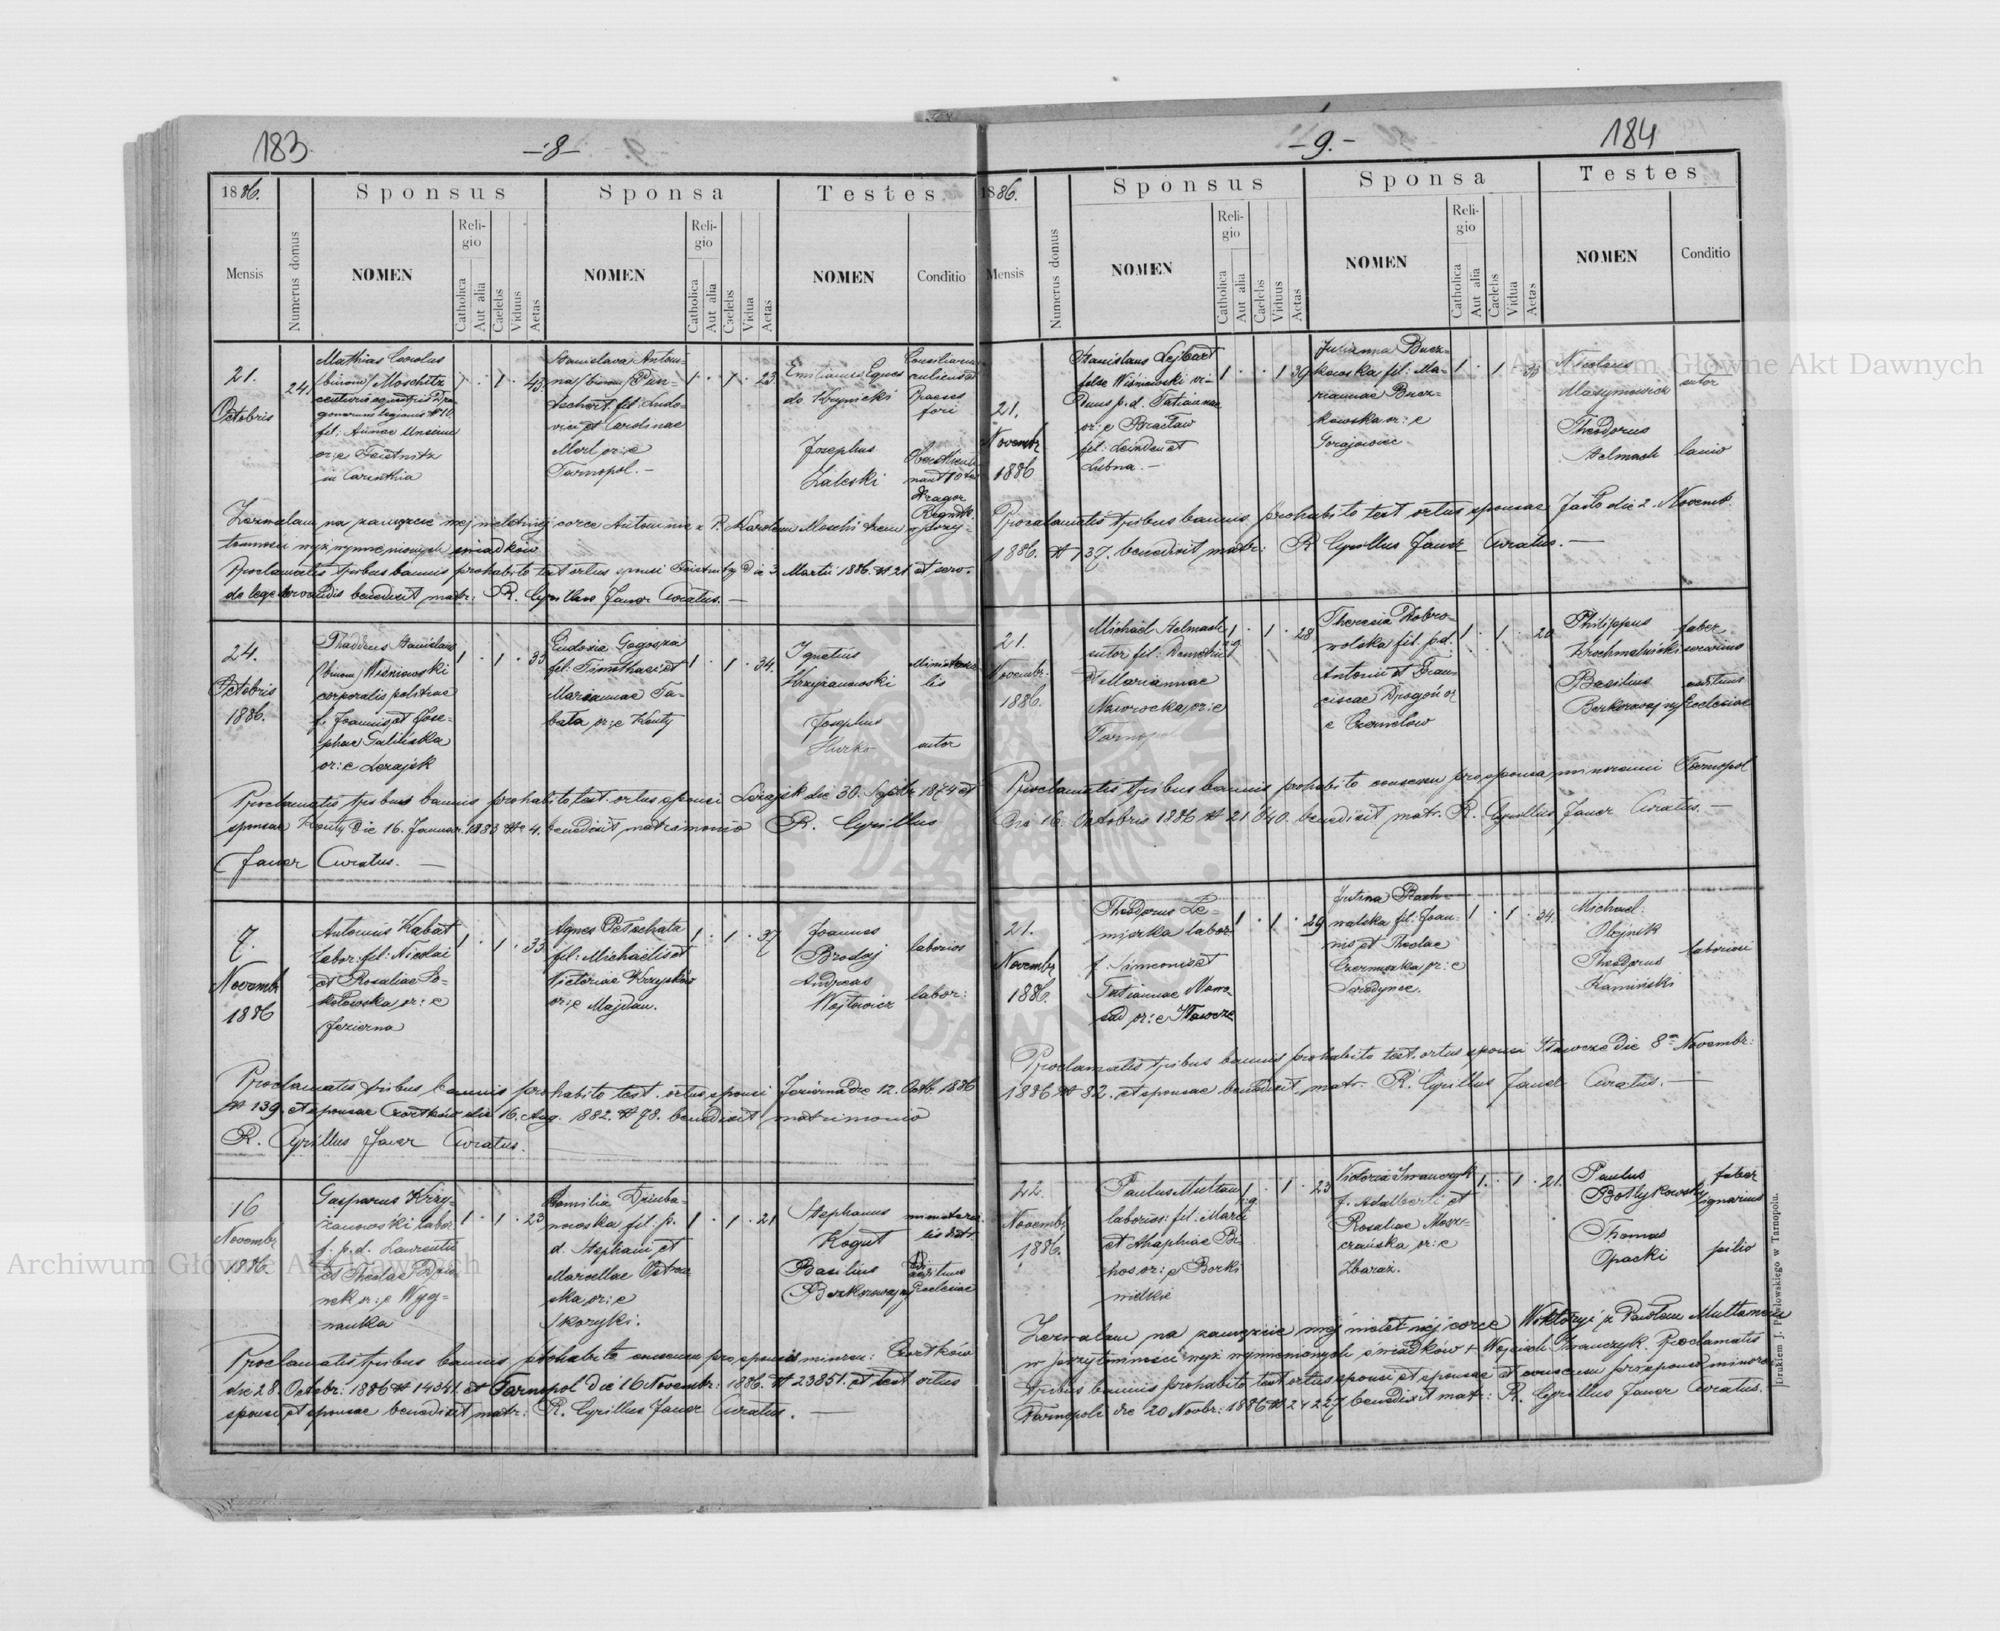 183
-8-
1886.
Mensis
Numerus domus
Sponsus
NOMEN
Religio
Catholica
Aut alia
Caelebs
Viduus
Aetas
Sponsa
NOMEN
Religio
Catholica
Aut alia
Caelebs
Vidua
Aetas
Testes
NOMEN
Conditio
21.
Octobris
24.
Mathias Carolus
(binom) Moschitz
fil: Annae
in Carinthia
1 . 1 . 43
Stanislava Anton-
na (binom) Pun-
schert fil: Ludo-
vici et Carolinae
Merl or: e
Tarnopol. -
1 . 1 . 23
Emilianus Eques
de Krynicki
Praeses
fori
Josephus
Zaleski
Zezwalam na zamęście mej nieletniej córce Antoninie z P. Karolem Moschitzem w przy-
tomności wyż wymienionych świadków
Proclamatis tribus bannis prohabito test ortus sponsi die 3 Martii 1886. № 21 et
de lege servandis benedixit matr: R. Cyrillus Jauer Curatus. -
24.
Octobris
1886.
Thaddeus Stanislaus
(binom) Wiśniowski
corporalis politiae
f. Joannis et Jose-
phae Galińska
or: e Leżajsk
1 . 1 . 33
Eudoxia Gogosza
fil. Timothaei et
Mariannae Ta-
bata or: e Kouty
1 . 1 . 34.
Ignatius
Krzyżanowski
Josephus
Hurko
sutor
Proclamatis tribus bannis prohabito test. ortus sponsi Leżajsk die 30. Septbr 1874 et
sponsae Kouty die 16. Januar. 1883 № 4. benedixit matrimonio R. Cyrillus
Jauer Curatus. -
7.
Novembr
1886
Antonius Kabat
labor: fil: Nicolai
et Rosaliae So-
kołowska or: e
Jezierna
1 . 1 . 33
Agnes Petschata
fil: Michaelis et
Victoriae Krzysków
or: e Majdan.
1 . 1 . 37
Joannes
Brodaj
laborios
Andreas
Wojtowicz
labor:
Proclamatis tribus bannis prohabito test. ortus sponsi Jezierna die 12. Octb. 1886
№ 139. et sponsae Czortków die 16. Aug. 1882. № 78. benedixit matrimonio
R. Cyrillus Jauer Curatus.
16
Novembr
1886.
Gasparus Krzy-
żanowski labor
f. p. d. Laurentii
et Theclae
or: e Wyg-
nanka
1 . 1 . 23
Aemilia Dziuba-
nowska fil: p.
d. Stephani et
Marcellae Ostro
ska or: e
Skoryki.
1 . 1 . 21
Stephanus
Kogut
Basilius
Berkorowajnyj
aedituus
Ecclesiae
Proclamatis tribus bannis prohabito consensu pro sponsis minoren: Czortków
die 28. Octobr: 1886 № 14341. et Tarnopol die 16 Novembr: 1886. № 23851. et test ortus
sponsi et sponsae benedixit matr: R. Cyrillus Jauer Curatus. -
184
-9.-
1886.
Mensis
Numerus domus
Sponsus
NOMEN
Religio
Catholica
Aut alia
Caelebs
Viduus
Aetas
Sponsa
NOMEN
Religio
Catholica
Aut alia
Caelebs
Vidua
Aetas
Testes
NOMEN
Conditio
21.
Novembr
1886
Stanislaus Lejbart
false Wiśniowski vi-
duus p. d. Tatiannae
or: e Bracław
fil: Leindeu et
Lubna. -
1 . . 1 39
Julianna Bucz-
kowska fil: Ma-
riannae Bucz-
kowska or: e
Gorajowiec
1 . 1 .
Nicolaus
Maxymowicz
sutor
Theodorus
Stelmach
lanio
Proclamatis tribus bannis prohabito test ortus sponsae Jasło die 2. Novemb.
1886. № 137. benedixit matr: R Cyrillus Jauer Curatus. -
21.
Novembr:
1886.
Michael Stelmach
sutor fil: Demetrii
et Mariannae
Nawrocka, or: e
Tarnopol
1 . 1 . 28
Theresia Dobro-
wolska fil. p. d.
Antonii et Fran-
ciscae Drogoń or
e Czernelow
1 . 1 . 20
Philippus
Krochmalniski
faber
Basilius
Berkorowajnyj
aedituus
Ecclesiae
Proclamatis tribus bannis prohabito consensu pro sponsa minorenni Tarnopol
die 16. Octobris 1886 № 21 640. benedixit matr. R. Cyrillus Jauer Curatus. -
21.
Novembr
1886.
Theodorus Le-
miszka labor
f. Simeonis et
Tatiannae Nawo
sad or: e Iławcze
1 . 1 . 29
Justina Stach-
nalska fil: Joan-
nis et Theclae
Czernuszka or: e
Seredynce.
1 . 1 . 34.
Michael:
Olejnik
Theodorus
Kamiński
laboriosi
Proclamatis tribus bannis prohabito test. ortus sponsi Iławcze die 8va Novembr:
1886 № 82. et sponsae benedixit matr. R. Cyrillus Jauer Curatus. -
22.
Novembr
1886.
Paulus Multan
laborios: fil: Marci
et Ahaphiae Bi-
hos or: e Borki
wielkie
1 . 1 . 23
Victoria Iwanczyk
f. Adalberti et
Rosaliae Mosz-
czańska or: e
Zbaraż.
1. . 1 . 21.
Paulus
Bołtykowski
faber
lignarius
Thomas
Opacki
pilio
Zezwalam na zamęście mej nieletniej córce Wiktoryi z Pawłem Multanem
w przytomności wyż wymienionych świadków + Wojciech Iwanczyk. Proclamatis
tribus bannis prohabito test ortus sponsi et sponsae et consensu pro sponsa minore
Tarnopoli die 20 Novbr: 1886 № 24227 benedixit matr: R. Cyrillus Jauer Curatus.
Drukiem J. Pawłowskiego w Tarnopolu.
Archiwum Główne Akt Dawnych
Archiwum Główne Akt Dawnych